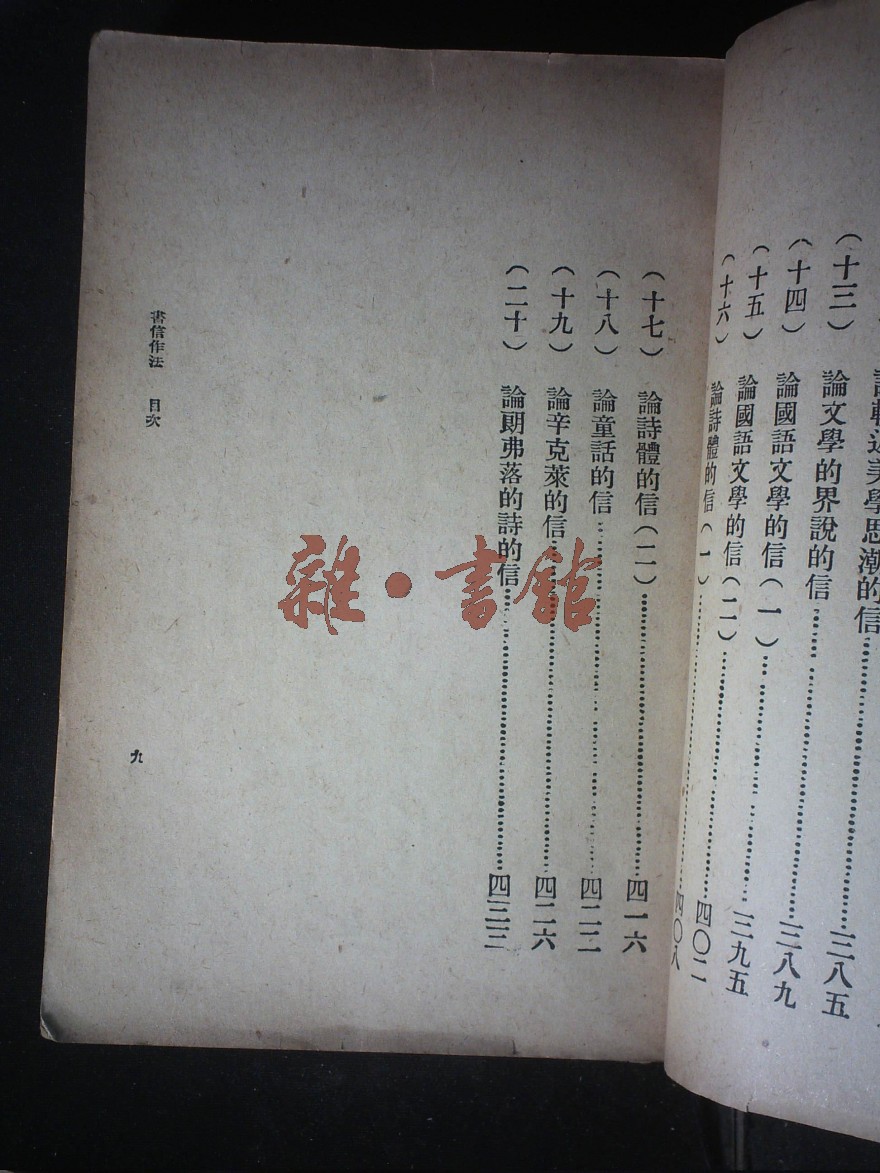 近美學思潮的信……三八五
（十三） 論文學的界說的信……三八九
（十四） 論國語文學的信（一）……三九五
（十五） 論國語文學的信（二）……四〇二
（十六） 論詩體的信（一）……四〇八
（十七） 論詩體的信（二）……四一六
（十八） 論童話的信……四二二
（十九） 論辛克萊的信……四二六
（二十） 論朗弗落的詩的信……四三三
書信作法 目次
九
雜·書館